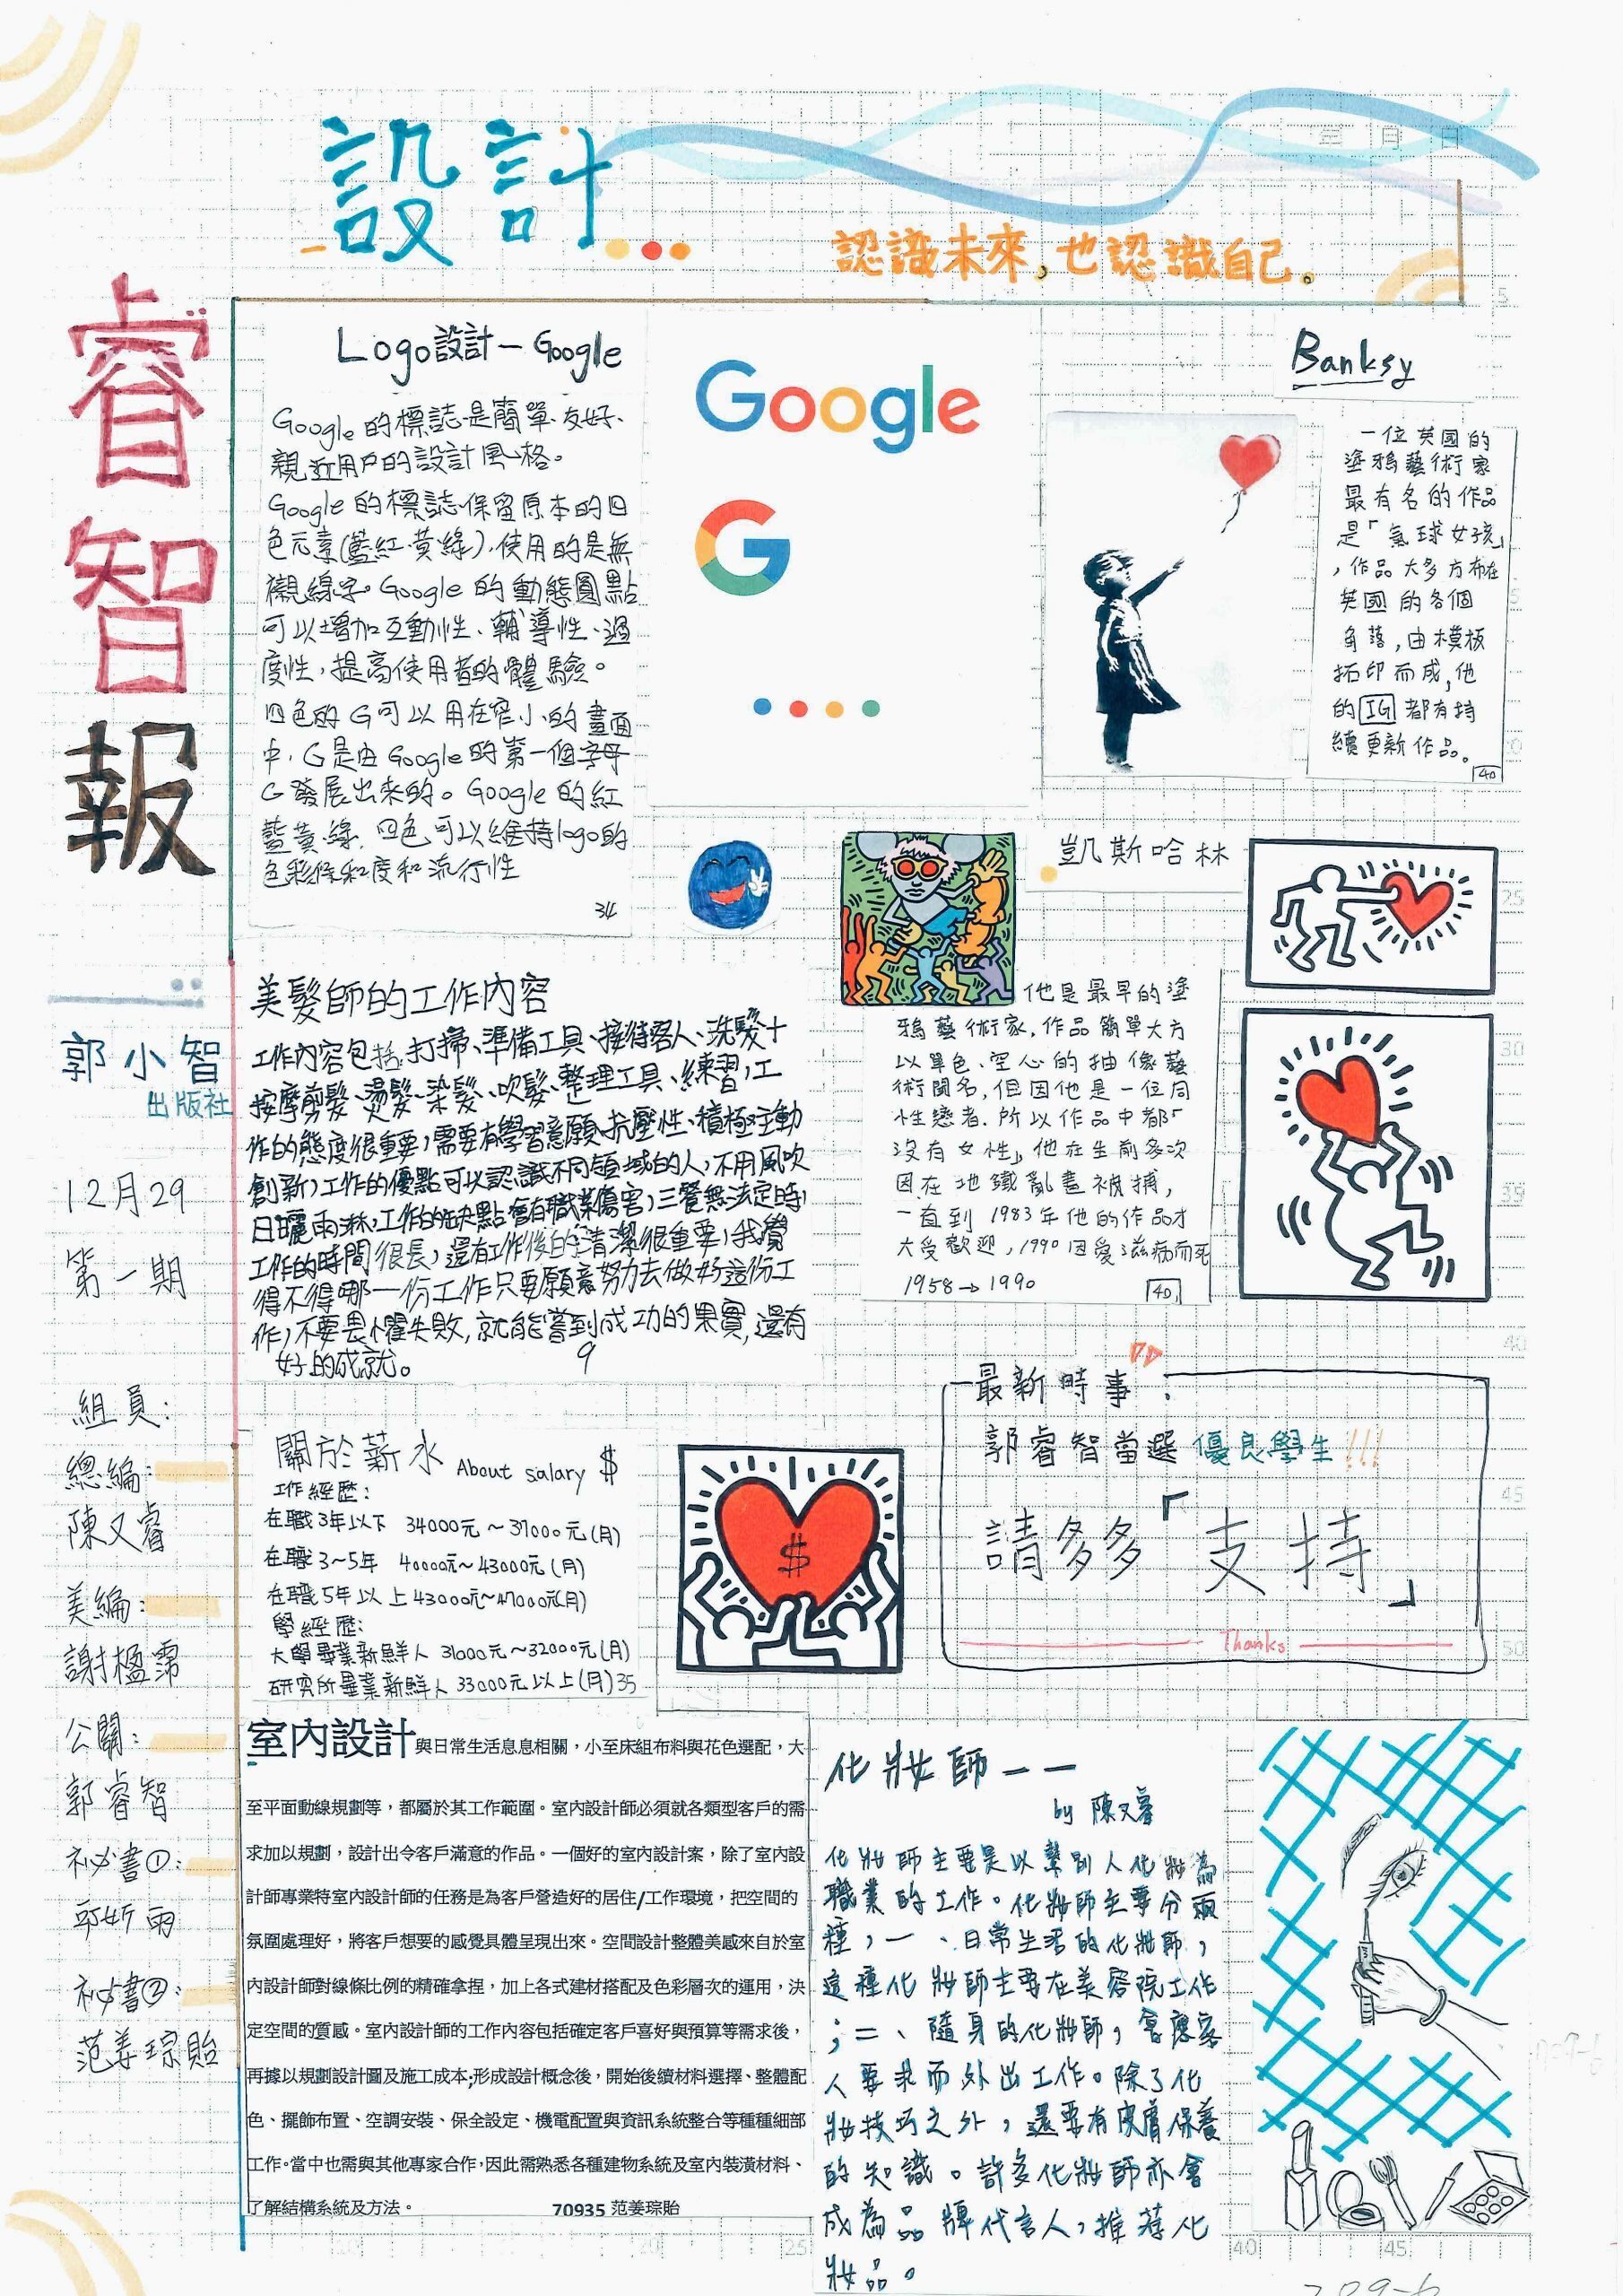 年 月 日
設計
認識未來,也認識自己。
睿智報
郭小智
出版社
12月29
第一期
組員:
總編:
陳又睿
美編:
謝楹霈
公關:
郭睿智
祕書①:
邱妡雨
祕書②:
范姜琮貽
Logo設計—Google
Google的標誌是簡單、友好、
親近用戶的設計風格。
Google的標誌保留原本的四
色元素(藍、紅、黃、綠),使用的是無
襯線字。Google的動態圓點
可以增加互動性、輔導性、過
度性,提高使用者的體驗。
四色的G可以用在窄小的畫面
中,G是由Google的第一個字母
G發展出來的。Google的紅
藍、黃、綠、四色可以維持logo的
色彩飽和度和流行性
34
Google
G
Banksy
一位英國的
塗鴉藝術家
最有名的作品
是「氣球女孩」
,作品大多方布在
英國的各個
角落,由模板
拓印而成,他
的IG都有持
續更新作品。
40
凱斯哈林
他是最早的塗
鴉藝術家,作品簡單大方
以單色、空心的抽像藝
術聞名,但因他是一位同
性戀者.所以作品中都「
沒有女性」,他在生前多次
因在地鐵亂畫被捕,
一直到1983年他的作品才
大受歡迎,1990因愛滋病而死
1958→1990
40
美髮師的工作內容
工作內容包括:打掃、準備工具、接待客人、洗髮十
按摩剪髮、燙髮、染髮、吹髮、整理工具、練習,工
作的態度很重要,需要有學習意願、抗壓性、積極主動
創新,工作的優點可以認識不同領域的人,不用風吹
日曬雨淋,工作的缺點會有職業傷害,三餐無法定時,
工作的時間很長,還有工作後的清潔很重要,我覺
得不得哪一份工作只要願意努力去做好這份工
作,不要畏懼失敗,就能嘗到成功的果實,還有
好的成就。
9
最新時事:
郭睿智當選優良學生!!!
請多多「支持」
Thanks
關於薪水 About salary $
工作經歷:
在職3年以下 34000元~37000元(月)
在職3~5年 40000元~43000元(月)
在職5年以上43000元~47000元(月)
學經歷:
大學畢業新鮮人 31000元~32000元(月)
研究所畢業新鮮人 33000元以上(月)35
$
室內設計與日常生活息息相關,小至床組布料與花色選配,大
至平面動線規劃等,都屬於其工作範圍。室內設計師必須就各類型客戶的需
求加以規劃,設計出令客戶滿意的作品。一個好的室內設計案,除了室內設
計師專業特室內設計師的任務是為客戶營造好的居住/工作環境,把空間的
氛圍處理好,將客戶想要的感覺具體呈現出來。空間設計整體美感來自於室
內設計師對線條比例的精確拿捏,加上各式建材搭配及色彩層次的運用,決
定空間的質感。室內設計師的工作內容包括確定客戶喜好與預算等需求後,
再據以規劃設計圖及施工成本;形成設計概念後,開始後續材料選擇、整體配
色、擺飾布置、空調安裝、保全設定、機電配置與資訊系統整合等種種細部
工作。當中也需與其他專家合作,因此需熟悉各種建物系統及室內裝潢材料、
了解結構系統及方法。 70935 范姜琮貽
化妝師——
by 陳又睿
化妝師主要是以幫別人化妝為
職業的工作。化妝師主要分兩
種,一、日常生活的化妝師,
這種化妝師主要在美容院工作
;二、隨身的化妝師,會應客
人要求而外出工作。除了化
妝技巧之外,還要有皮膚保養
的知識。許多化妝師亦會
成為品牌代言人,推荐化
妝品。